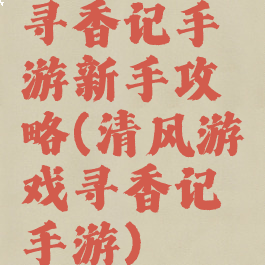 寻香记手
游新手攻
略(清风游
戏寻香记
手游)